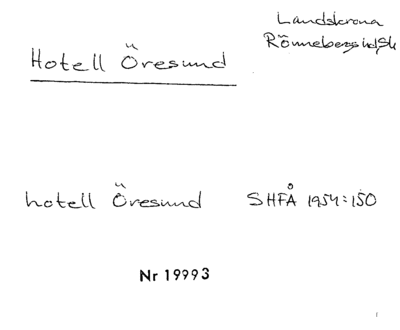 Landskrona
Rönnebergs hd, Sk
Hotell Öresund
hotell Öresund SHFÅ 1954:150
Nr 19993